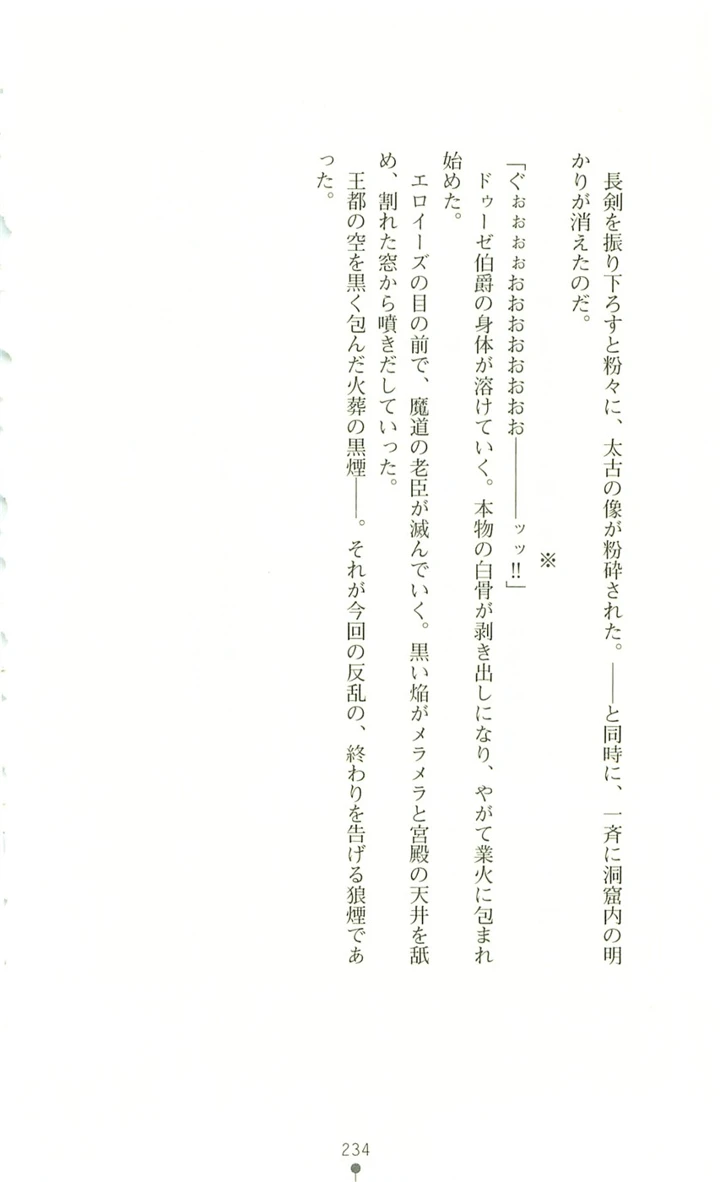 長剣を振り下ろすと粉々に、太古の像が粉砕された。――と同時に、一斉に洞窟内の明
かりが消えたのだ。
※
「ぐぉぉぉぉおおおおおおおお――――ッッ‼」
　ドゥーゼ伯爵の身体が溶けていく。本物の白骨が剥き出しになり、やがて業火に包まれ
始めた。
　エロイーズの目の前で、魔道の老臣が滅んでいく。黒い焔がメラメラと宮殿の天井を舐
め、割れた窓から噴きだしていった。
　王都の空を黒く包んだ火葬の黒煙――。それが今回の反乱の、終わりを告げる狼煙であ
った。
234